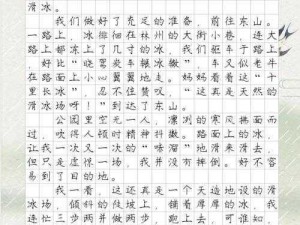 滑冰。
我们做好了充足的准备，前往东山。
一路上，冰徘徊在林州的大街小巷，连大
路上都冻上了几寸的冰，我们驱车于路上，
好比“晓驾炭车辗冰辙”，车又似老牛
在路面上小心翼翼地走。妈妈看着这“十
里长冰”，忍不住赞叹，“这真是天然的
滑冰场呀！”到达了东山。
公园里空无一人，凛冽的寒风拂面而
过，吹得人顿时精神抖数。路面上的冰，
让我一次又一次的“哧溜”地滑来滑去，
但只是虚惊一场，我并没有摔倒。好不容
易到了目的地。
我一看，这还真是一个天造地设的滑
冰场，倾斜的陡坡上，铺着厚厚的冰，我
连忙三步两并做两步，跑上去，可谁知，